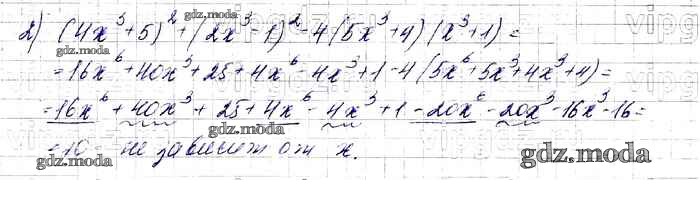 2) (4x³+5)²+(2x³-1)²-4(5x³+4)(x³+1)=
=16x⁶+40x³+25+4x⁶-4x³+1-4(5x⁶+5x³+4x³+4)=
=16x⁶+40x³+25+4x⁶-4x³+1-20x⁶-20x³-16x³-16=
=10 - не зависит от x.
gdz.moda
gdz.moda
gdz.moda
gdz.moda
gdz.moda
gdz.moda